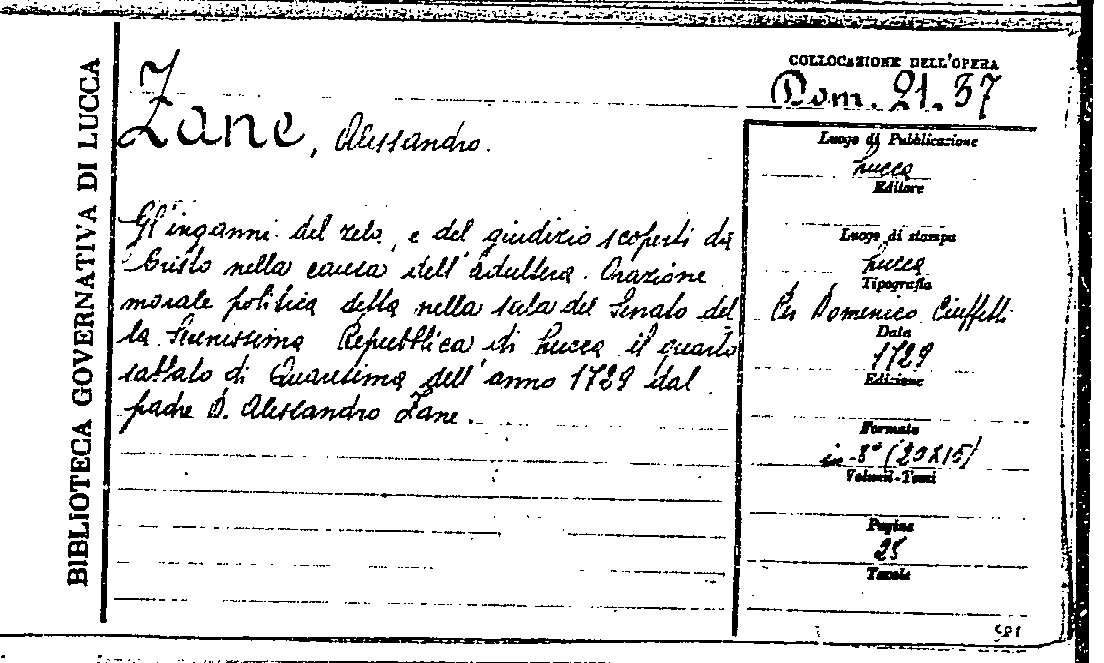 BIBLIOTECA GOVERNATIVA DI LUCCA
Z
Zane, Alessandro.
Gl'inganni del zelo, e del giudizio scoperti da
Cristo nella causa dell'adultera. Orazione
morale politica detta nella sala del Senato del
la Serenissima Repubblica di Lucca il quarto
sabbato di Quaresima dell'anno 1729 dal
padre D. Alessandro Zane.
COLLOCAZIONE DELL'OPERA
Dom. 21.37
Luogo di Pubblicazione
Lucca
Editore
Luogo di stampa
Lucca
Tipografia
Per Domenico Ciuffetti
Data
1729
Edizione
Formato
in-8° (20X15)
Volumi-Tomi
Pagine
25
Tavole